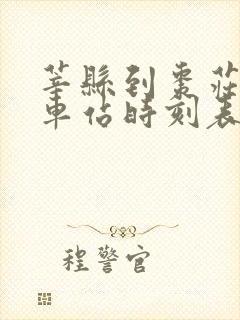 莘縣到棗莊
車站時刻表
程警官